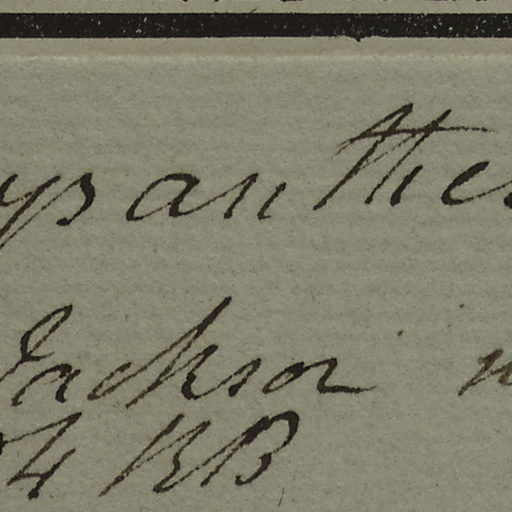 ysanthe
Jackson
4 RB